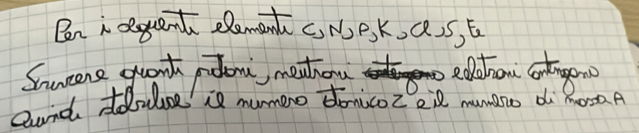 Per i seguenti elementi C, N, P, K, Cl, S, Fe
Scrivere quanti protoni, neutroni elettroni contengono
Quindi stabilire il numero atomico Z e il numero di massa A